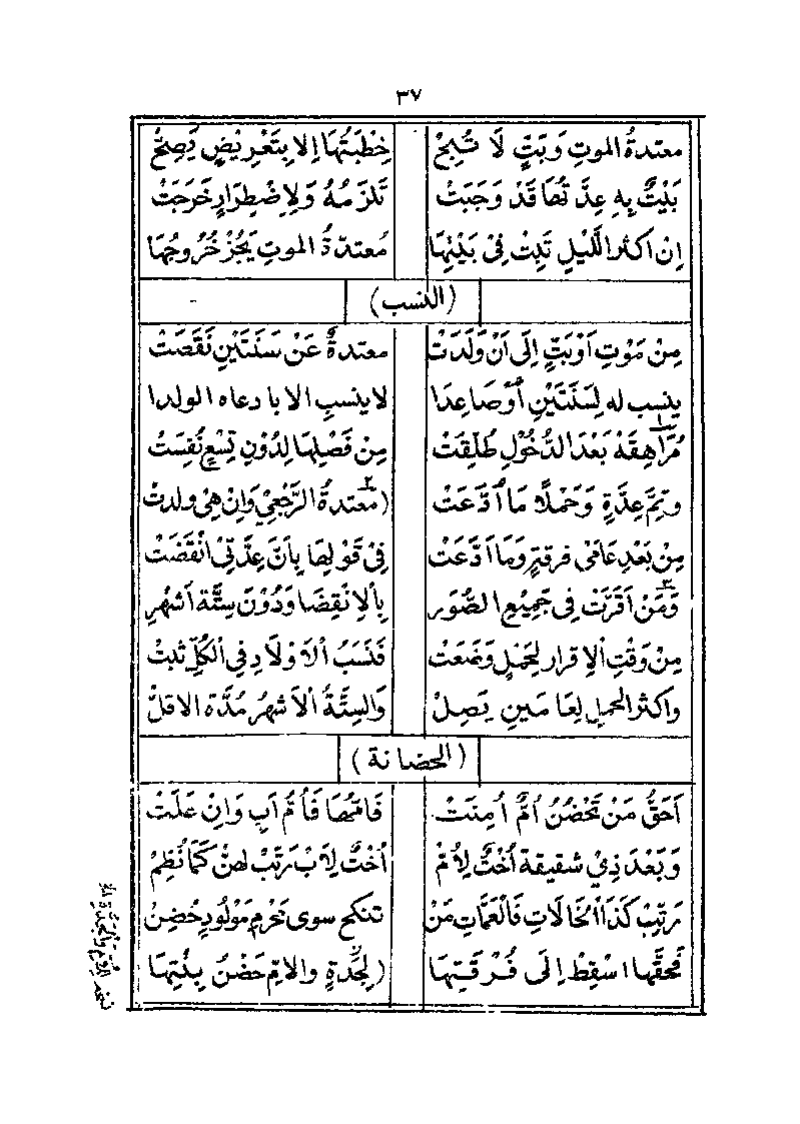 ٣٧
معتدةُ الموتِ وَبَتٍّ لَا تُبِحْ خِطْبَتُهَا إلا بِتَعْرِيْضٍ يَصِحُّ
بَيْتٌ بِهِ عِدَّ تُهَا قَدْ وَجَبَتْ تَلْزَمُهُ وَلِاضْطِرَارٍ خَرَجَتْ
إِنْ اكثَرَ اللَّيْلِ تَبِتْ فِىْ بَيْتِهَا مُعتدّةُ الموتِ يَجُزْ خُرُوجُهَا
(النسب)
مِنْ مَوْتِ اَوْبَتٍّ إِلَى اَنْ وَلَدَتْ معتدةٌ عَنْ سَنَتَيْنِ نَقَصَتْ
ينسب له لِسَنَتَيْنِ أَوْصَاعِدَا لا ينسبِ الا با دعاه الولدا
مُرَاهِقَهْ بَعْدَ الدُّخُوْلِ طُلِّقَتْ مِنْ فَصْلِهَا لِدُوْنِ تِسْعٍ نُفِسَتْ
وتِمَّ عِدَّةٍ وَحَمْلًا مَا ادَّعَتْ (معتدةُ الرَّجْعِيْ وَاِنْ هِىْ ولدتْ
مِنْ بَعْدِ عَامَىْ فرقةٍ وَمَا ادَّعَتْ فِىْ قَوْلِهَا بِأَنَّ عِدَّتِىْ انْقَضَتْ
وَمَنْ اَقَرَّتْ فِى جَمِيْعِ الصُّوَرِ بِألاِنْقِضَا وَدُوْنَ سِتَّة اَشْهُرِ
مِنْ وَقْتِ الاِقرار لِحَمْلٍ وَضَعَتْ فَنَسَبُ اْلاَوْلَادِ فِي الْكُلِّ ثَبتْ
واكثر الحمل لِعَا مَيْنِ يَصِلْ وَالسِتَّةُ اْلاَشْهُرُ مُدَّة الاقلْ
(الحضانة)
اَحَقُّ مَنْ تَحْضُنُ اُمٌّ اُمِنَتْ فَامُّهَا فَاُمُّ اَبٍ وَاِنْ عَلَتْ
وَبَعْدَ ذِيْ شقيقة اُخْتٌ لِاُمْ اُخْتٌ لِاَبْ رَتِّبْ لهنّ كَمَا نُظِمْ
رَتِّبْ كَذَا الْخَالَاتِ فَالْعَمَّاتِ مَنْ تنكح سوى مَحْرَمِ مَوْلُودٍ حُضِنْ
فحقَّها اسْقِطْ اِلَى فُرْقَتِهَا (لِجَدَّةٍ والامِّ حَضْنُ بِنْتِهَا
نسخه الاُمِّ وَالْجَدَّةِ الخ